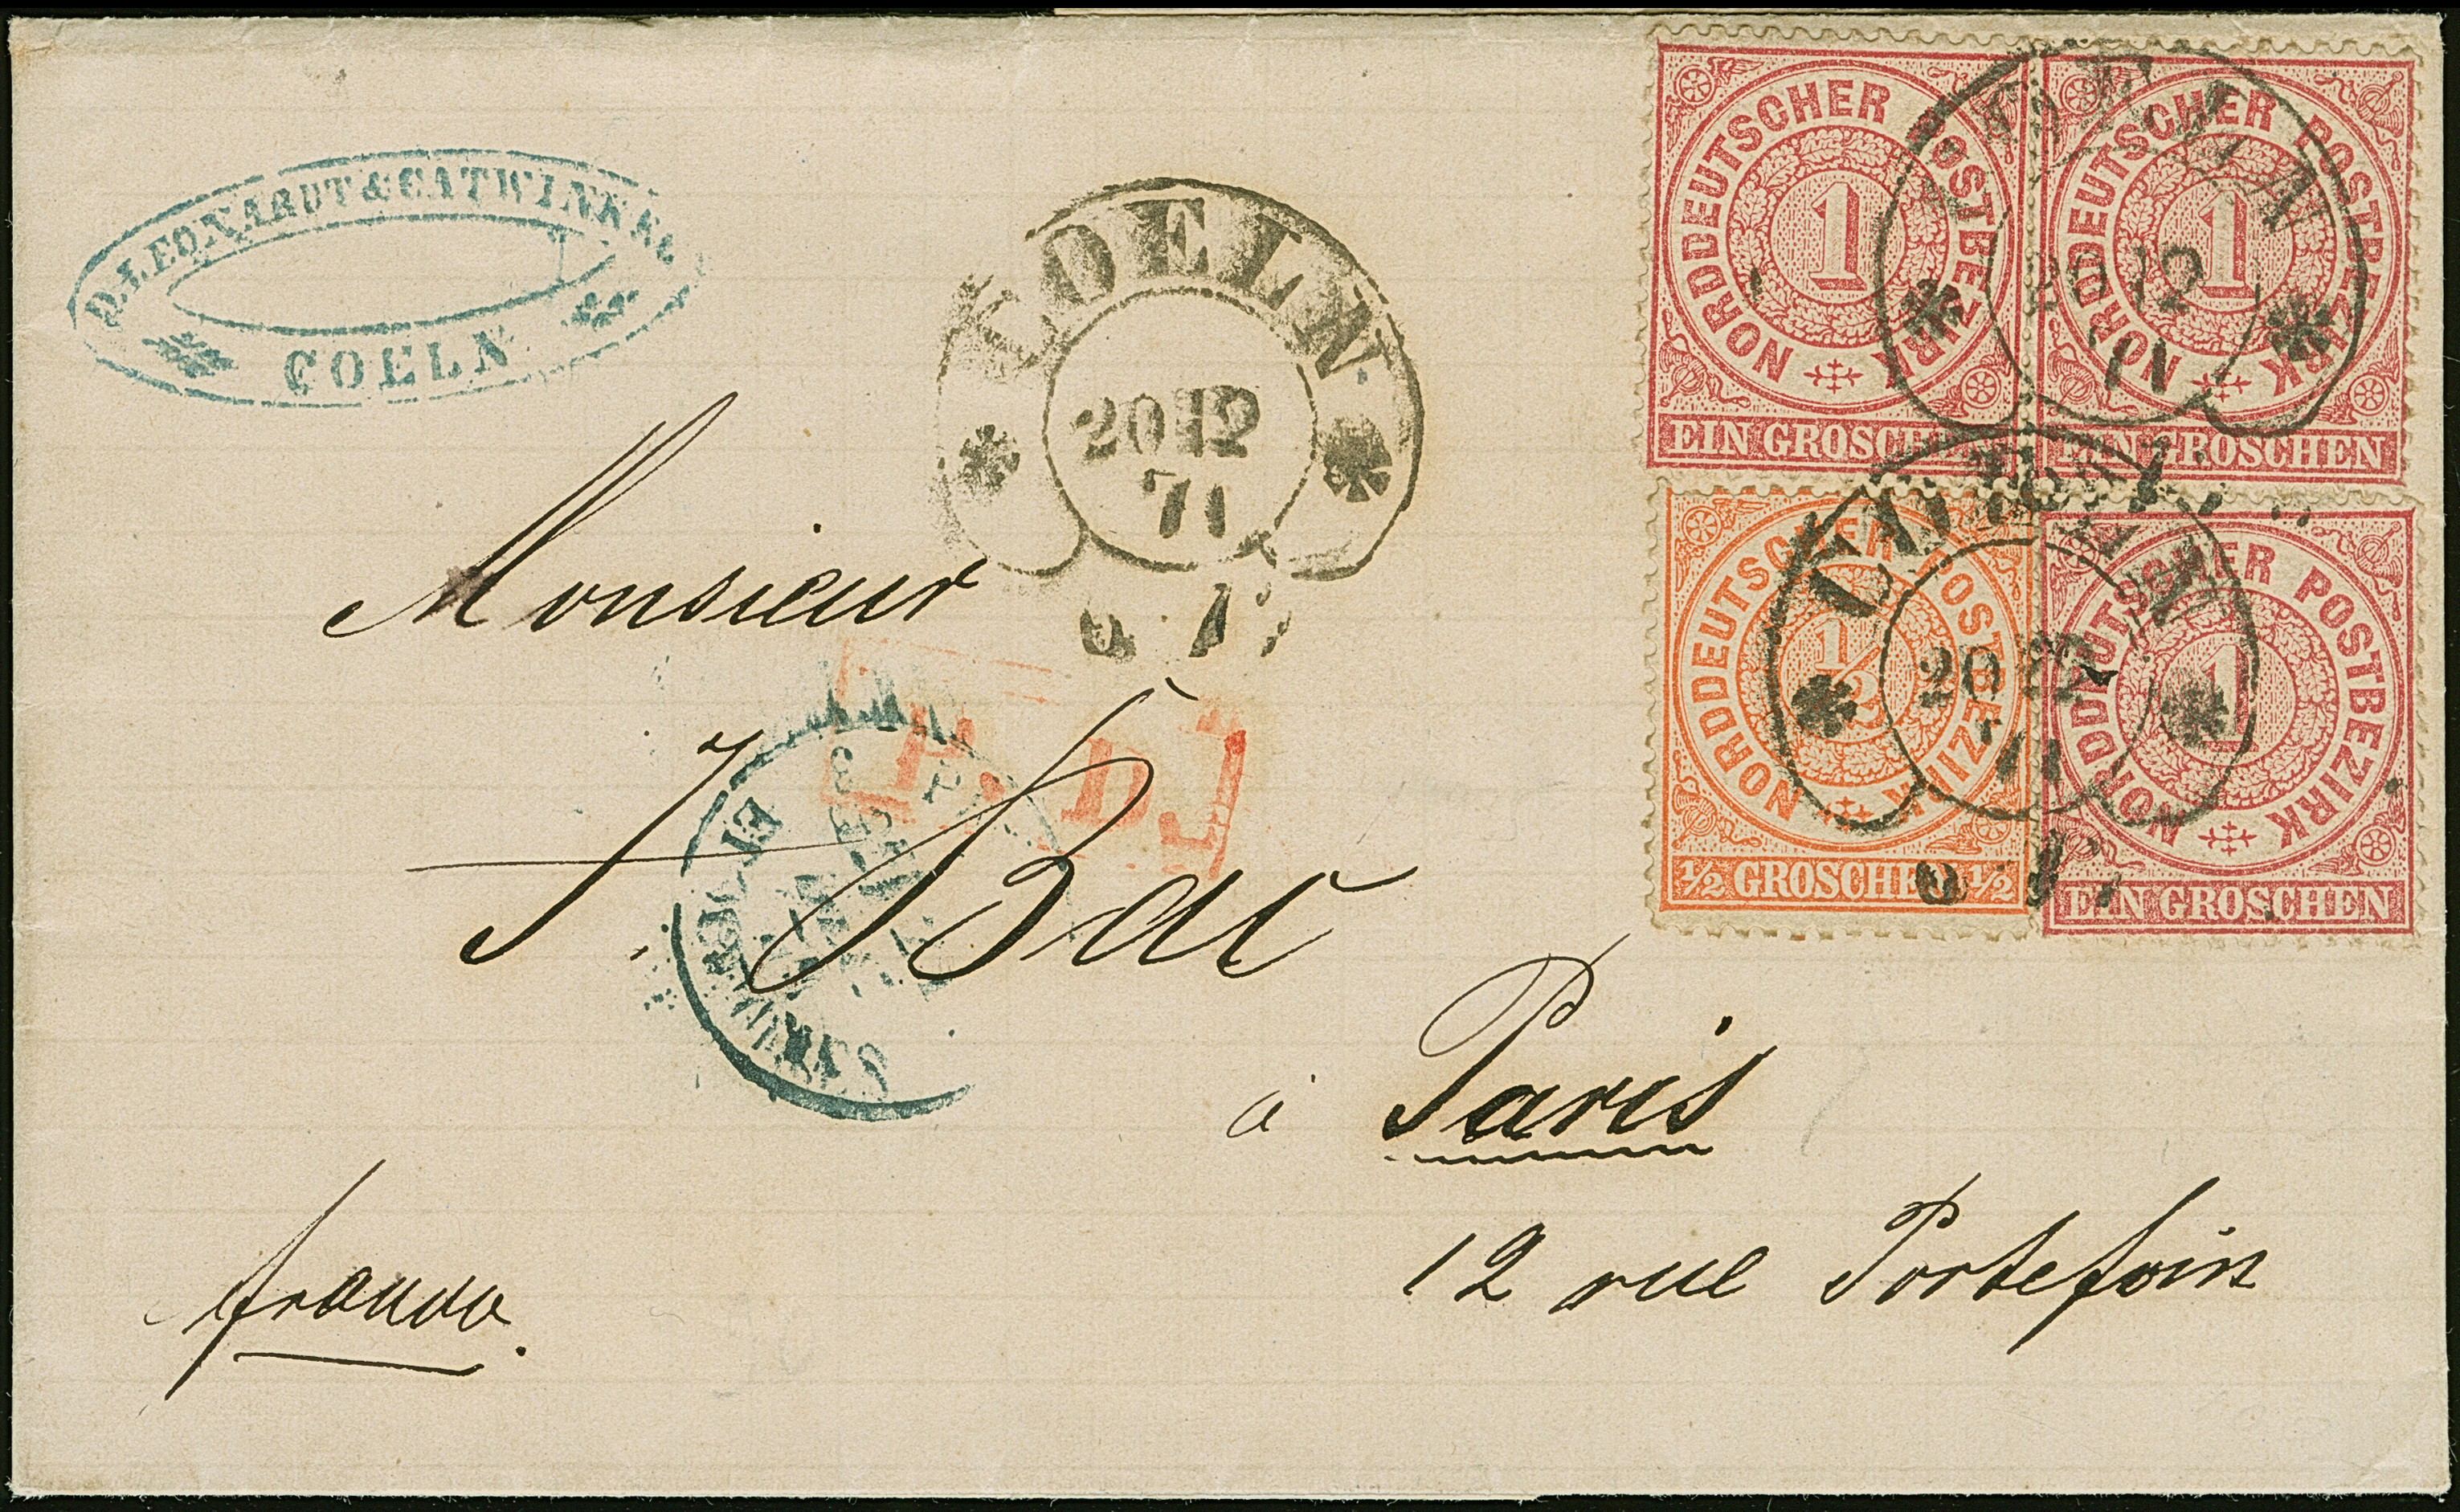 D. LEONARDT & CATWINKEL
COELN
KOELN
20 12
71
6-7
NORDDEUTSCHER POSTBEZIRK
1
EIN GROSCHEN
NORDDEUTSCHER POSTBEZIRK
1
EIN GROSCHEN
20 12
71
NORDDEUTSCHER POSTBEZIRK
1/2
1/2 GROSCHEN 1/2
NORDDEUTSCHER POSTBEZIRK
1
EIN GROSCHEN
20 12
71
Monsieur
P. D
J. Bac
à Paris
12 rue Portefoin
franco.